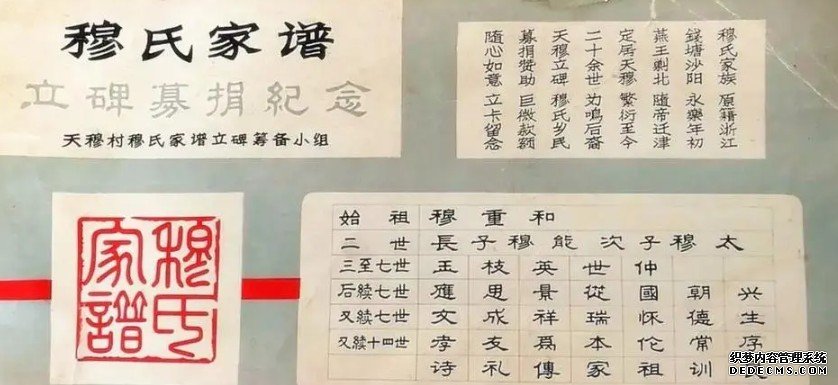 穆氏家谱
立碑募捐紀念
天穆村穆氏家谱立碑筹备小组
穆氏家族 原籍浙江
錢塘沙阳 永樂年初
燕王剿北 隨帝迁津
定居天穆 繁衍至今
二十余世 为鸣后裔
天穆立碑 穆氏乡民
募捐赞助 巨微款额
隨心如意 立卡留念
穆氏家譜
始祖 穆重和
二世 長子穆能 次子穆太
三至七世 玉枝英世仲
后续七世 應思景從國朝兴
又续七世 文成祥瑞怀德生
又续十四世 孝友爲本伦常序
诗礼傳家祖训
织梦内容管理系统
DEDECMS.COM